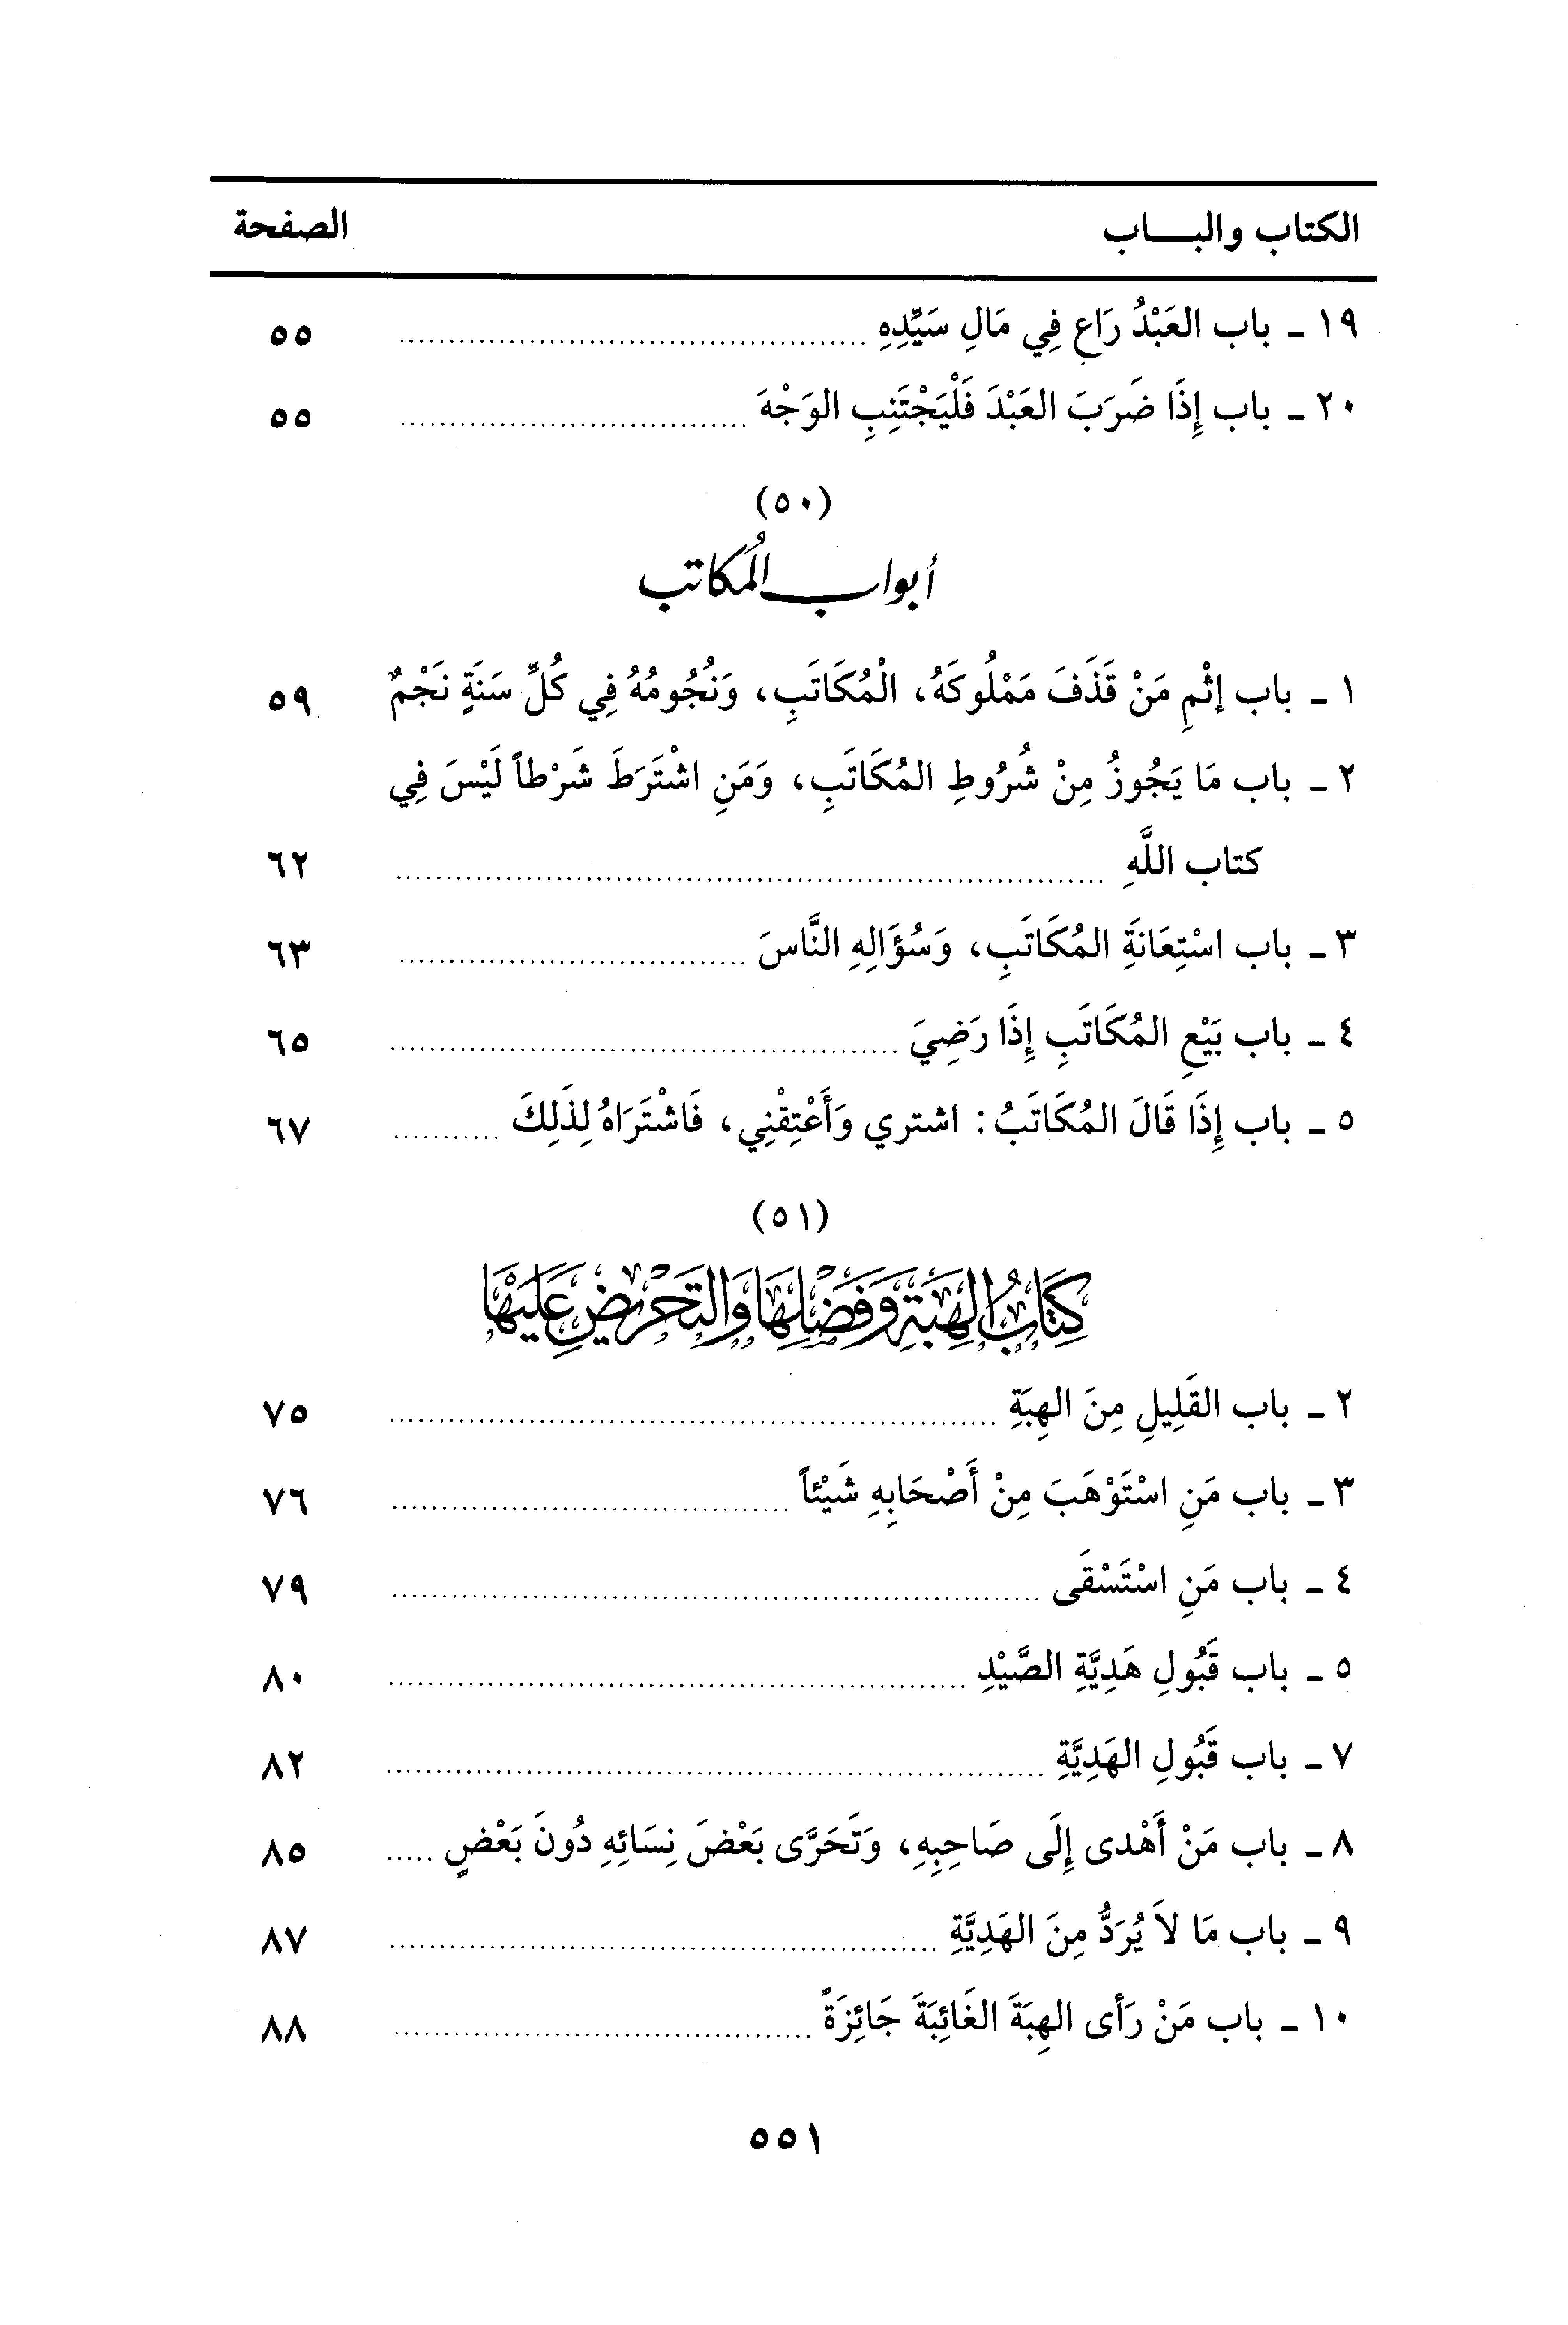 الكتاب والبـــاب الصفحة
١٩ ـ باب العَبْدُ رَاعٍ فِي مَالِ سَيِّدِهِ ........ ٥٥
٢٠ ـ باب إِذَا ضَرَبَ العَبْدَ فَلْيَجْتَنِبِ الوَجْهَ ........ ٥٥
(٥٠)
أبواب المُكاتب
١ ـ باب إثْمِ مَنْ قَذَفَ مَمْلُوكَهُ، الْمُكَاتَبِ، وَنُجُومُهُ فِي كُلِّ سَنَةٍ نَجْمٌ ٥٩
٢ ـ باب مَا يَجُوزُ مِنْ شُرُوطِ المُكَاتَبِ، وَمَنِ اشْتَرَطَ شَرْطاً لَيْسَ فِي
كتاب اللَّهِ ........ ٦٢
٣ ـ باب اسْتِعَانَةِ المُكَاتَبِ، وَسُؤَالِهِ النَّاسَ ........ ٦٣
٤ ـ باب بَيْعِ المُكَاتَبِ إِذَا رَضِيَ ........ ٦٥
٥ ـ باب إِذَا قَالَ المُكَاتَبُ: اشتري وَأَعْتِقْنِي، فَاشْتَرَاهُ لِذَلِكَ ........ ٦٧
(٥١)
كِتَابُ الهِبَةِ وَفَضْلِهَا وَالتَحْرِيضِ عَلَيْهَا
٢ ـ باب القَلِيلِ مِنَ الهِبَةِ ........ ٧٥
٣ ـ باب مَنِ اسْتَوْهَبَ مِنْ أَصْحَابِهِ شَيْئاً ........ ٧٦
٤ ـ باب مَنِ اسْتَسْقَى ........ ٧٩
٥ ـ باب قَبُولِ هَدِيَّةِ الصَّيْدِ ........ ٨٠
٧ ـ باب قَبُولِ الهَدِيَّةِ ........ ٨٢
٨ ـ باب مَنْ أَهْدى إِلَى صَاحِبِهِ، وَتَحَرَّى بَعْضَ نِسَائِهِ دُونَ بَعْضٍ ..... ٨٥
٩ ـ باب مَا لاَ يُرَدُّ مِنَ الهَدِيَّةِ ........ ٨٧
١٠ ـ باب مَنْ رَأى الهِبَةَ الغَائِبَةَ جَائِزَةً ........ ٨٨
٥٥١